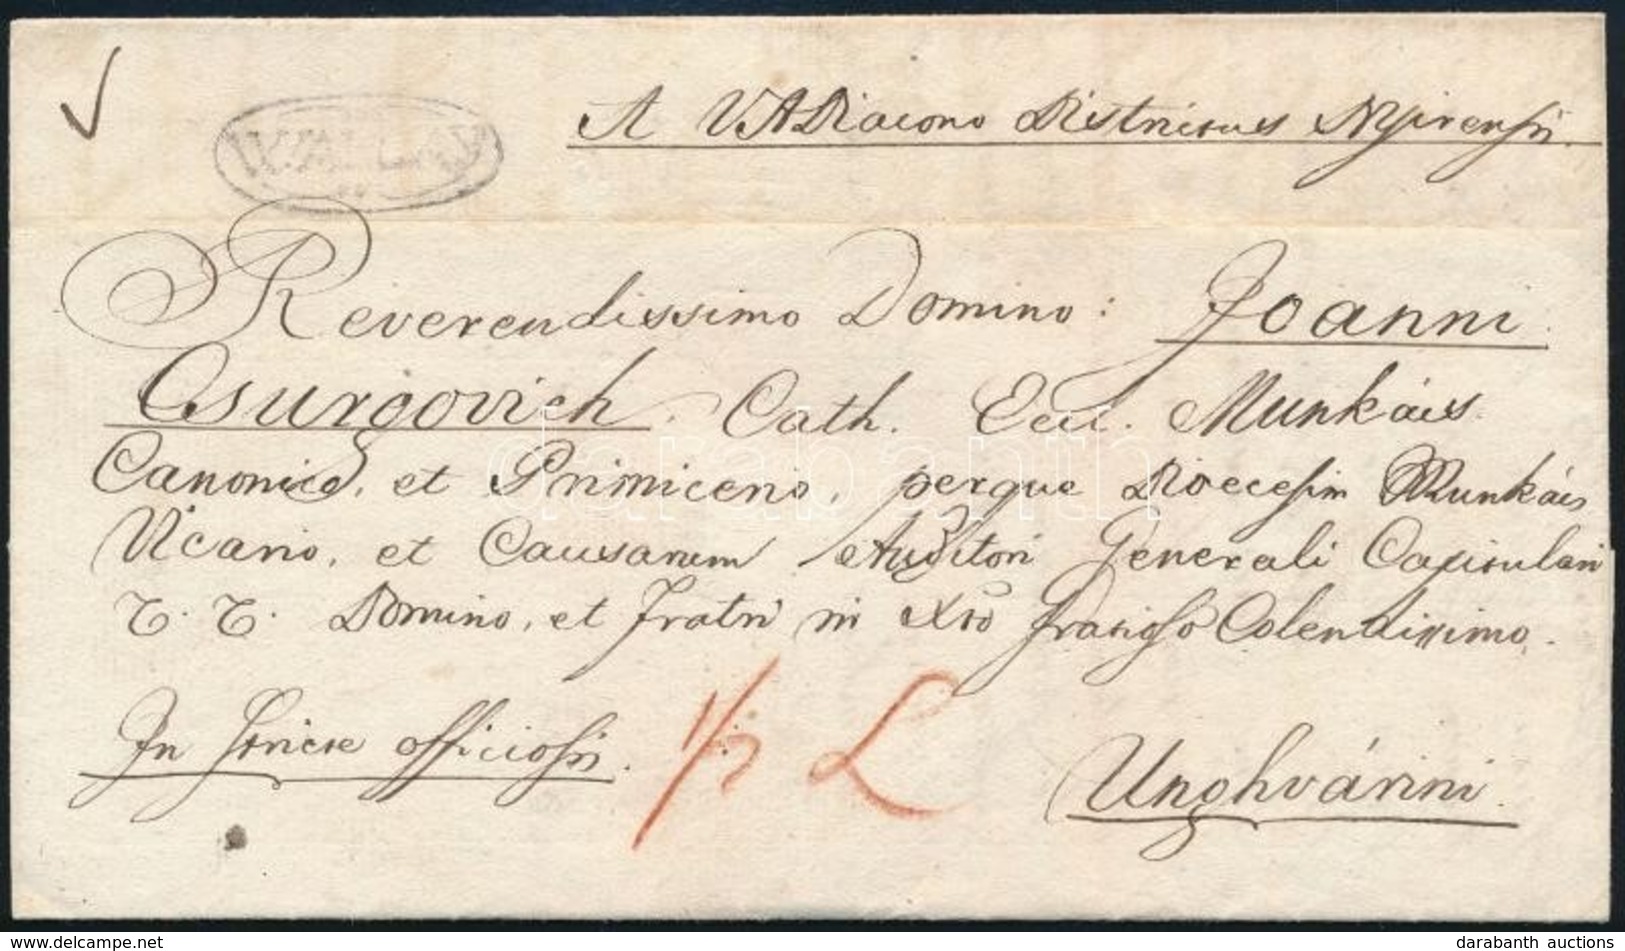 WALLAY
A VADiacono Districtus Nyirensis.
Reverendissimo Domino: Joanni
Csurgovich. Cath. Eccl. Munkács.
Canonico, et Primicerio, perque Dioecesim Munkács
Vicario, et Causarum Auditori Generali Capitulari
T. T. Domino, et Fratri in Xto Colendissimo.
In officiosis.
1/2 L
Unghvárini.
darabanth
delcampe.net
darabanth auctions